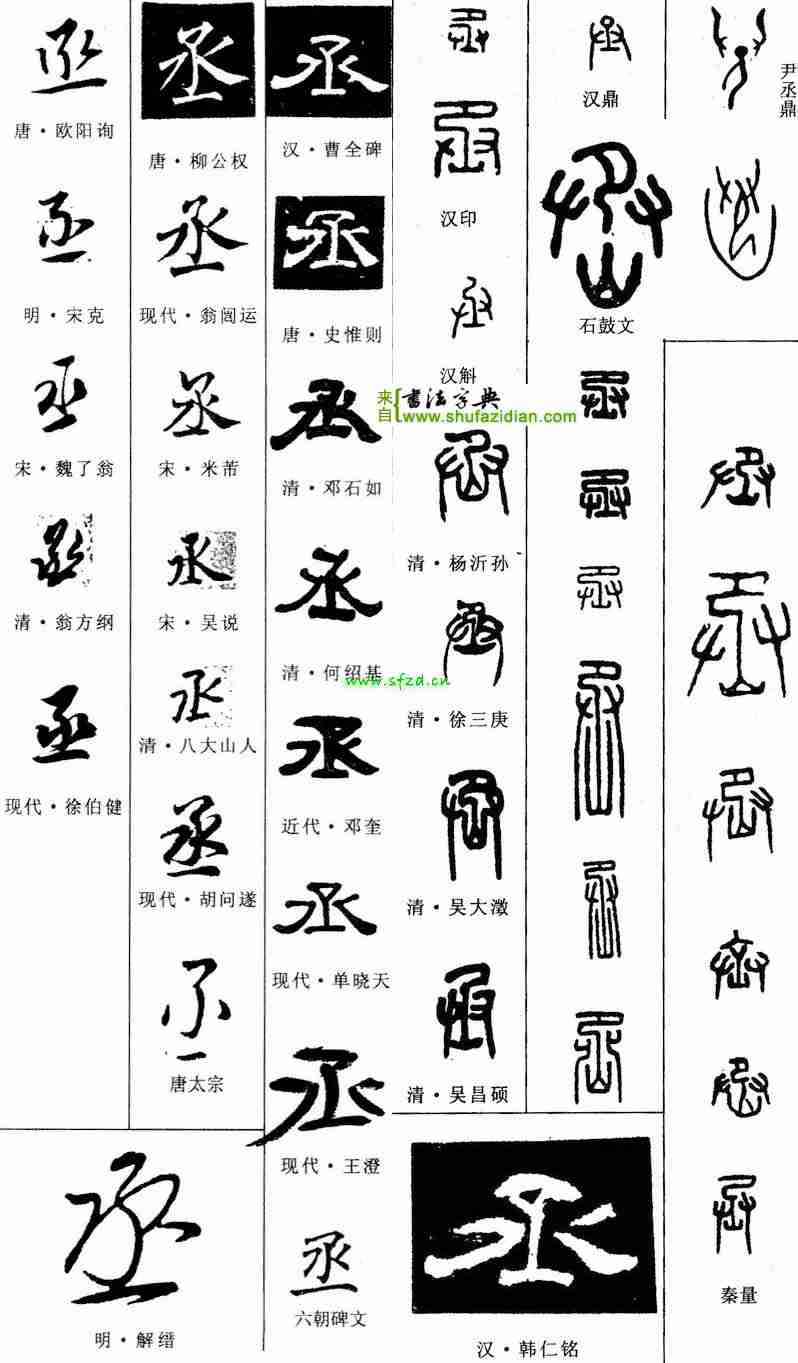 丞
唐·欧阳询
丞
明·宋克
丞
宋·魏了翁
丞
清·翁方纲
丞
现代·徐伯健
丞
唐·柳公权
丞
现代·翁闿运
丞
宋·米芾
丞
宋·吴说
丞
清·八大山人
丞
现代·胡问遂
丞
唐太宗
丞
明·解缙
丞
汉·曹全碑
丞
唐·史惟则
丞
清·邓石如
丞
清·何绍基
www.sfzd.cn
丞
近代·邓奎
丞
现代·单晓天
丞
现代·王澄
丞
六朝碑文
丞
丞
汉印
丞
汉斛
来自
书法字典
www.shufazidian.com
丞
清·杨沂孙
丞
清·徐三庚
丞
清·吴大澂
丞
清·吴昌硕
丞
汉·韩仁铭
丞
汉鼎
丞
石鼓文
丞
丞
丞
丞
丞
丞
丞
尹丞鼎
丞
丞
丞
丞
丞
丞
丞
秦量